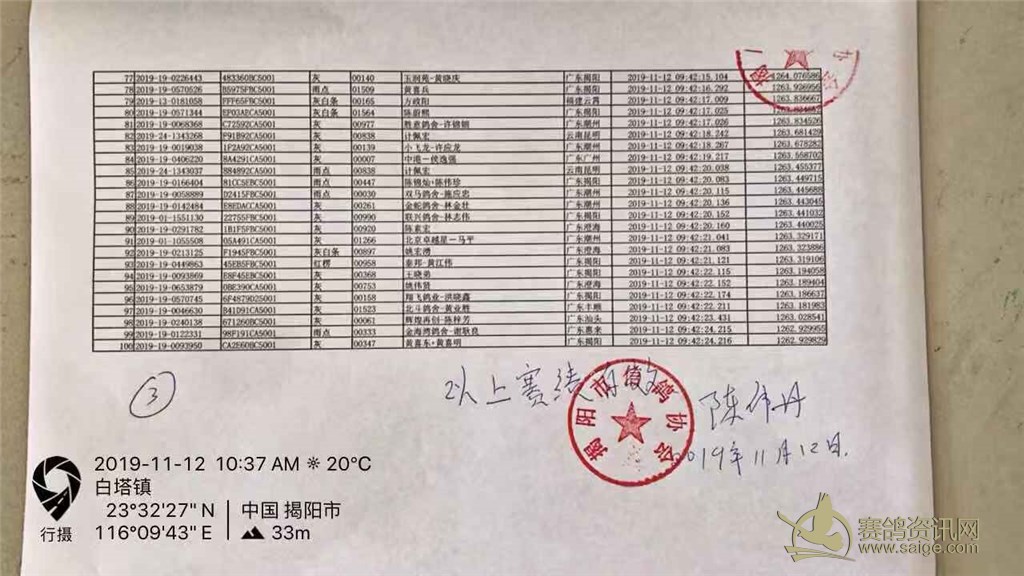 77 2019-19-0226443 483360BC5001 灰 00140 玉润苑-黄晓庆 广东揭阳 2019-11-12 09:42:15.104 1264.076586
78 2019-19-0570526 B5975FBC5001 雨点 01509 黄喜兵 广东揭阳 2019-11-12 09:42:16.292 1263.926955
79 2019-13-0181058 FFF65FBC5001 灰白条 00165 方政阳 福建云霄 2019-11-12 09:42:17.009
80 2019-19-0571344 EF03AECA5001 灰白条 01564 陈蔚熙 广东揭阳 2019-11-12 09:42:17.025
81 2019-19-0068368 C72592CA5001 灰 00977 广东潮州 2019-11-12 09:42:17.026 1263.834526
82 2019-24-1343268 F91B92CA5001 灰 00838 计佩宏 云南昆明 2019-11-12 09:42:18.242 1263.681429
83 2019-19-0019038 1F2A92CA5001 灰 00139 小飞龙-许应龙 广东潮州 2019-11-12 09:42:18.267 1263.678283
84 2019-19-0406220 8A4291CA5001 灰 00007 中港-侯逸强 广东广州 2019-11-12 09:42:19.217 1263.558702
85 2019-24-1343037 B84892CA5001 雨点 00838 计佩宏 云南昆明 2019-11-12 09:42:20.038 1263.455377
86 2019-19-0166404 81CC5EBC5001 雨点 00447 陈锦灿-陈伟珍 广东揭阳 2019-11-12 09:42:20.083 1263.449715
87 2019-19-0058889 D2415FBC5001 雨点 00030 双马鸽舍-施应忠 广东潮州 2019-11-12 09:42:20.115 1263.445688
88 2019-19-0142484 E8EDACCA5001 灰 00261 金蛇鸽舍-林金壮 广东潮州 2019-11-12 09:42:20.136 1263.443045
89 2019-01-1551130 22755FBC5001 灰 00990 联兴鸽舍-林志伟 广东揭阳 2019-11-12 09:42:20.152 1263.441032
90 2019-19-0291782 1B1F5FBC5001 灰 00920 陈素宏 广东澄海 2019-11-12 09:42:20.160 1263.440025
91 2019-01-1055508 05A491CA5001 灰 01266 北京卓越星-马平 广东潮州 2019-11-12 09:42:21.041 1263.329171
92 2019-19-0213125 F1945FBC5001 灰白条 00897 姚宏湧 广东澄海 2019-11-12 09:42:21.083 1263.323886
93 2019-19-0449863 45EB5FBC5001 红楞 00958 泰邦-黄江伟 广东揭阳 2019-11-12 09:42:21.121 1263.319106
94 2019-19-0093869 E8F45EBC5001 灰 00368 王晓弟 广东揭阳 2019-11-12 09:42:22.115 1263.194058
95 2019-19-0653879 0BE390CA5001 灰 00753 姚伟贤 广东澄海 2019-11-12 09:42:22.152 1263.189404
96 2019-19-0570745 6F4879025001 灰 00158 翔飞鸽业-洪晓鑫 广东揭阳 2019-11-12 09:42:22.174 1263.186637
97 2019-19-0046630 B41D91CA5001 灰 01523 北斗鸽舍-黄业胜 广东丰顺 2019-11-12 09:42:22.211 1263.181983
98 2019-19-0240138 671260BC5001 灰 00061 辉翔再创-陈梓芳 广东汕头 2019-11-12 09:42:23.431 1263.028541
99 2019-19-0122331 98F191CA5001 雨点 00333 金海湾鸽舍-谢耿良 广东惠来 2019-11-12 09:42:24.215 1262.929955
100 2019-19-0093950 CA2E60BC5001 灰 00347 黄喜东-黄喜明 广东揭阳 2019-11-12 09:42:24.216 1262.929829
③
以上赛绩有效
揭阳市信鸽协会
陈伟丹
2019年11月12日.
2019-11-12 10:37 AM ☀ 20℃
白塔镇
23°32'27" N 中国 揭阳市
116°09'43" E 33m
行摄
赛鸽资讯网
www.saige.com